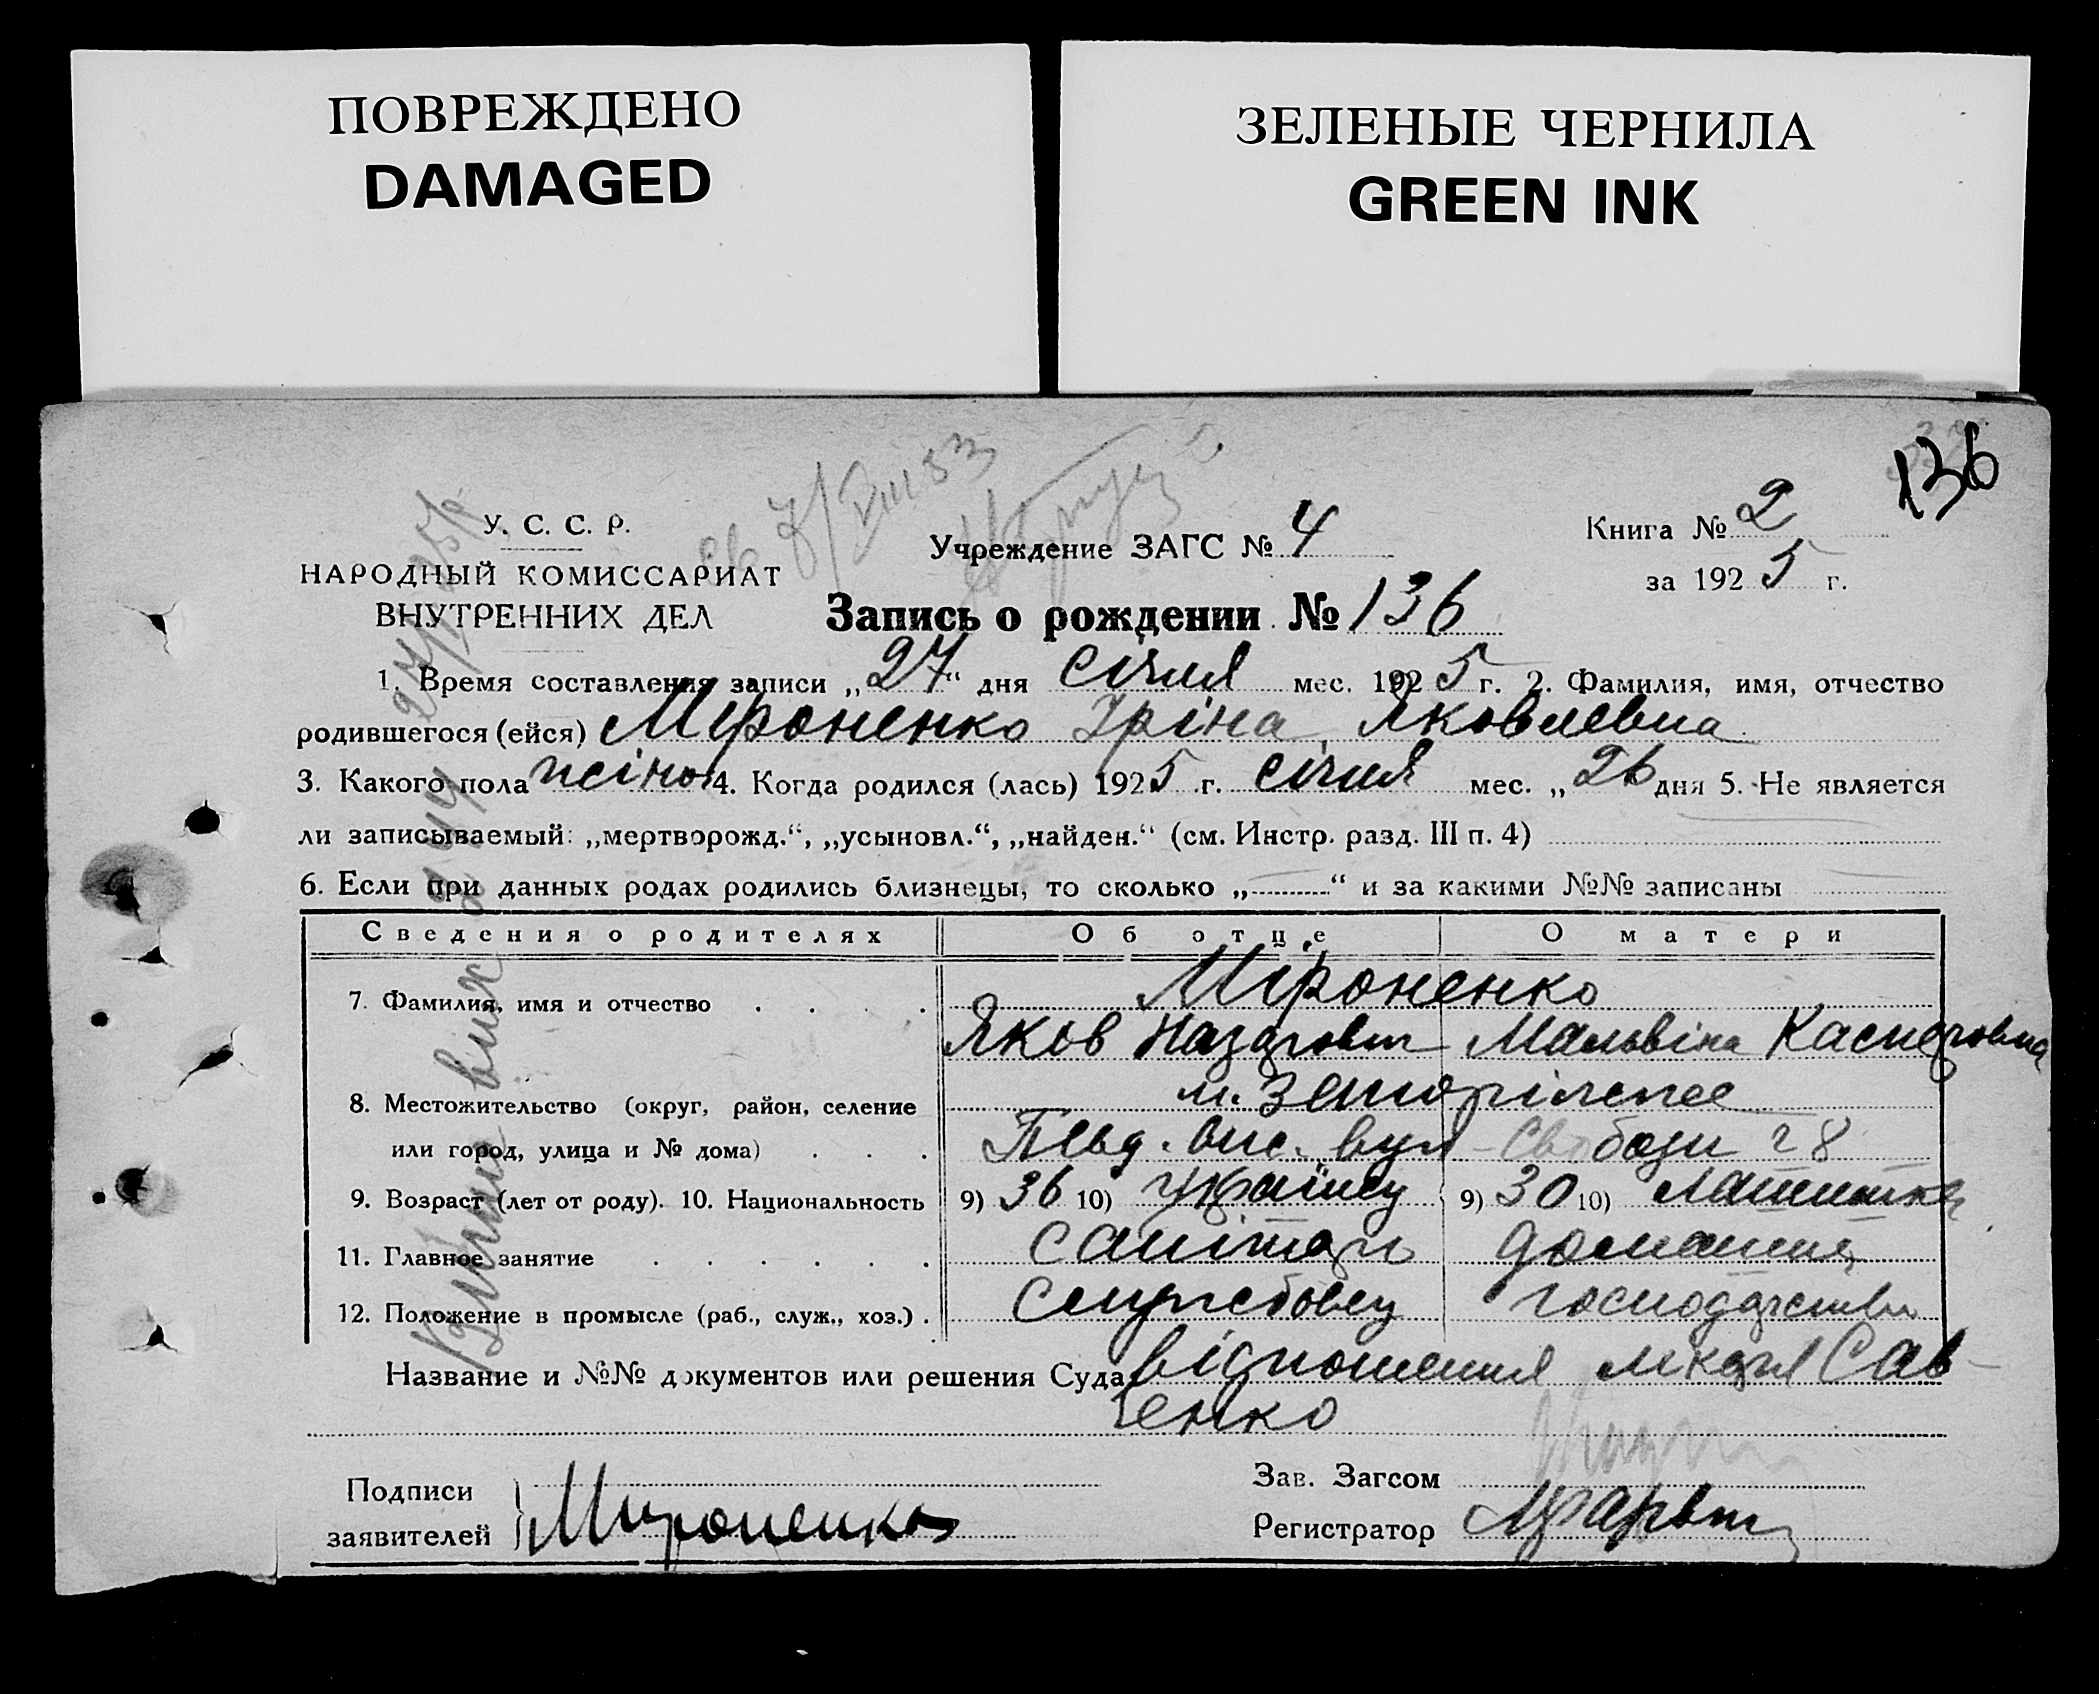 ПОВРЕЖДЕНО
DAMAGED
ЗЕЛЕНЫЕ ЧЕРНИЛА
GREEN INK
136
У. С. С. Р.
НАРОДНЫЙ КОМИССАРИАТ
ВНУТРЕННИХ ДЕЛ
Учреждение ЗАГС № 4
Книга № 2
за 1925 г.
Запись о рождении № 136
1. Время составления записи „27“ дня січня мес. 1925 г. 2. Фамилия, имя, отчество
родившегося (ейся) Міроненко Іріна Яковлевна
3. Какого пола жіноч 4. Когда родился (лась) 1925 г. січня мес. „26 дня 5. Не является
ли записываемый: „мертворожд.“, „усыновл.“, „найден.“ (см. Инстр. разд. III п. 4)
6. Если при данных родах родились близнецы, то сколько „ “ и за какими №№ записаны
Сведения о родителях Об отце О матери
7. Фамилия, имя и отчество Міроненко
Яков Назарович Мальвіна Касперовна
8. Местожительство (округ, район, селение
или город, улица и № дома) вул Свободи 28
9. Возраст (лет от роду). 10. Национальность 9) 36 10) Україн 9) 30 10) Латишка
11. Главное занятие санітар домашня
12. Положение в промысле (раб., служ., хоз.) Службовец господарство
Название и №№ документов или решения Суда Відношення лікаря Сав-
ченко
Подписи
заявителей Мироненко
Зав. Загсом
Регистратор